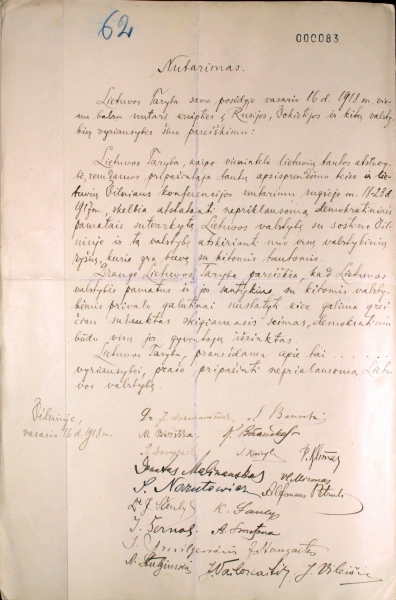 62
000083
Nutarimas.
Lietuvos Taryba savo posėdyje vasario 16 d. 1918 m. vienu
balsu nutarė kreiptis į Rusijos, Vokietijos ir kitų valsty-
bių vyriausybes šiuo pareiškimu:
Lietuvos Taryba, kaipo vienintelė lietuvių tautos atstovy-
bė, remdamos pripažintąja tautų apsisprendimo teise ir lie-
tuvių Vilniaus konferencijos nutarimu rugsėjo m. 18-23 d.
1917 m., skelbia atstatanti nepriklausomą demokratiniais
pamatais sutvarkytą Lietuvos valstybę su sostine Vil-
niuje ir tą valstybę atskirianti nuo visų valstybinių
ryšių, kurie yra buvę su kitomis tautomis.
Drauge Lietuvos Taryba pareiškia, kad Lietuvos
valstybės pamatus ir jos santykius su kitomis valsty-
bėmis privalo galutinai nustatyti kiek galima grei-
čiau sušauktas steigiamasis seimas, demokratiniu
būdu visų jos gyventojų išrinktas.
Lietuvos Taryba, pranešdama apie tai . . . . .
vyriausybei, prašo pripažinti nepriklausomą Lietu-
vos valstybę.
Vilniuje,
vasario 16 d. 1918 m.
Dr. J. Basanavičius S. Banaitis
M. Biržiška K. Bizauskas
P. Klimas
Donatas Malinauskas Vl. Mironas
S. Narutowicz Alfonsas Petrulis
Dr. J. Šaulys K. Šaulys
J. Šernas A. Smetona
J. Smilgevičius J. Staugaitis
A. Stulginskis J. Vailokaitis J. Vileišis